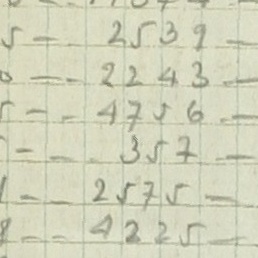 5 - - 2539 -
- - 2243 -
5 - - 4756 -
- - 357 -
- - 2575 -
8 - - 4225 -